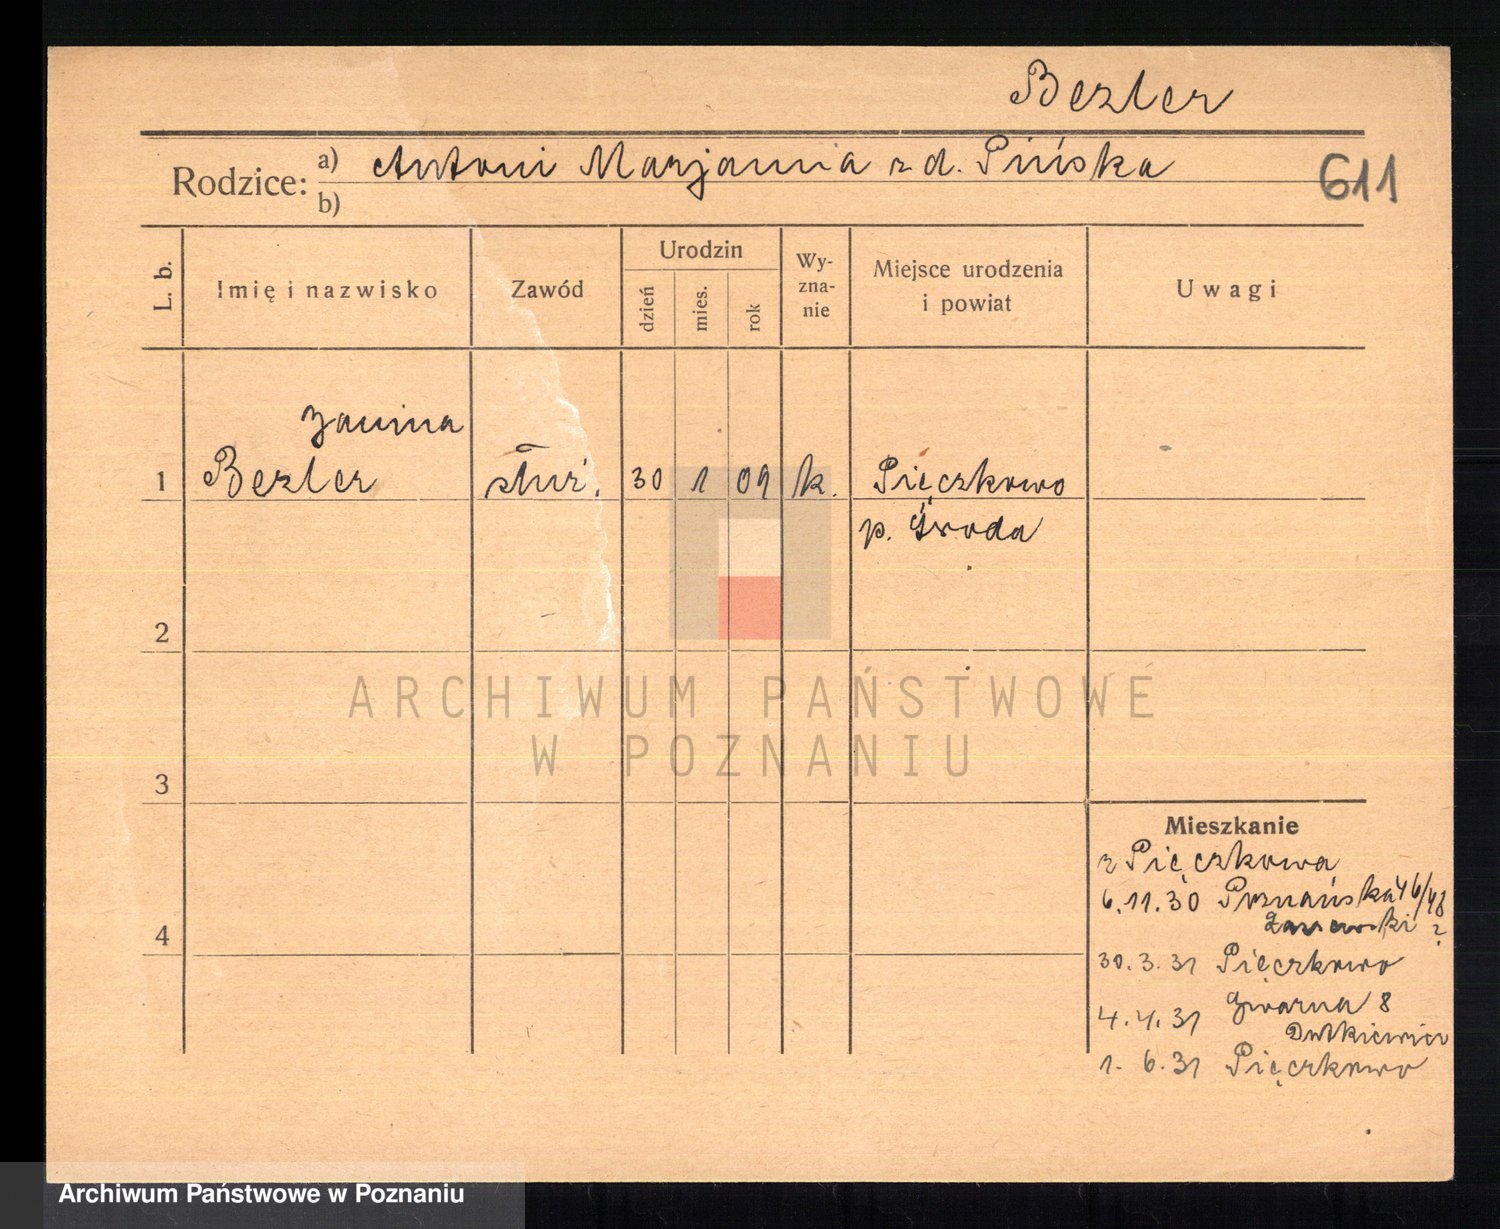 Bezler
Rodzice: a) Antoni Marjanna z d. Pińska
b)
611
L. b.
Imię i nazwisko
Zawód
Urodzin
dzień
mies.
rok
Wy-
zna-
nie
Miejsce urodzenia
i powiat
Uwagi
Janina
1 Bezler służ. 30 1 09 k. Pięczkowo
p. Środa
2
ARCHIWUM PAŃSTWOWE
W POZNANIU
3
Mieszkanie
z Pięczkowa
6.11.30 Poznańska 46/48
4
30.3.31 Pięczkowo
Gwarna 8
4.4.31
Dutkiewicz
1. 6.31 Pięczkowo
Archiwum Państwowe w Poznaniu